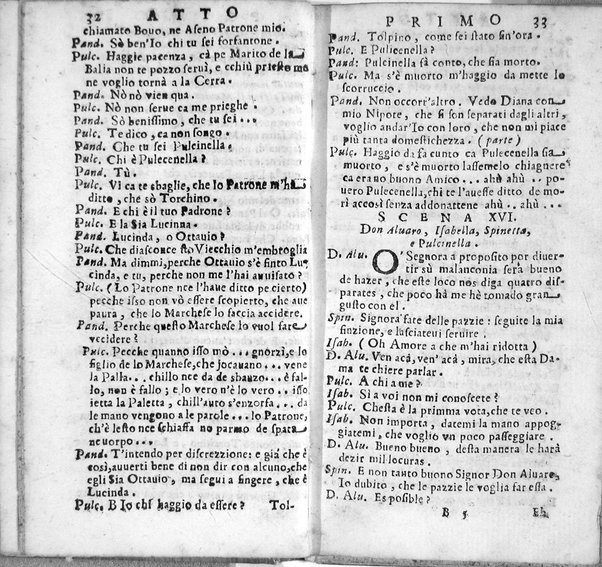 32 ATTO
chiamato Bouo, ne Aseno Patrone mio.
Pand. Sò ben'Io chi tu sei forfantone.
Pulc. Haggie pacenza, cà pe Marito de la
Balia non te pozzo seruì, e cchiù priesto me
ne voglio tornà a la Cerra.
Pand. Nò nò vien qua.
Pulc. Nò non serue ca me prieghe.
Pand. Sò benissimo, che tu sei...
Pulc. Te dico, ca non songo.
Pand. Che tu sei Pulcinella.
Pulc. Chi è Pulecenella?
Pand. Tù.
Pulc. Vi ca te sbaglie, che lo Patrone m'hà
ditto, che sò Torchino.
Pand. E chi è il tuo Padrone?
Pulc. E la Sia Lucinna.
Pand. Lucinda, o Ottauio?
Pulc. Che diasconce sto Viecchio m'embroglia
Pand. Ma dimmi, perche Ottauio s'è finto Lu-
cinda, e tu, perche non me l'hai auuisato?
Pulc. (Lo Patrone nce l'haue ditto pe cierto)
pecche isso non vò essere scopierto, che aue
paura, che lo Marchese lo faccia accidere.
Pand. Perche questo Marchese lo vuol fare
vccidere?
Pulc. Pecche quanno isso mò... gnorzì, e lo
figlio de lo Marchese, che jocauano... vene
la Palla... chillo nce dà de sbauzo... è fal-
lo, non è fallo; e lo vero n'è lo vero.. isso
ietta la Paletta, chill'auto s'enzorfa... da
le mano vengono a le parole... lo Patrone,
ch'è lesto nce schiaffa no parmo de spata
ncuorpo...
Pand. T'intendo per discrezzione: e già che è
così, auuerti bene di non dir con alcuno, che
egli Sia Ottauio, ma segui a fingere, che è
Lucinda.
Pulc. B Io chi haggio da essere? Tol-
PRIMO 33
Pand. Tolpino, come sei stato sin'ora.
Pulc. E Pulicenella?
Pand. Pulcinella fà conto, che sia morto.
Pulc. Ma s'è muorto m'haggio da mette lo
scorruccio.
Pand. Non occorr'altro. Vedo Diana con
mio Nipote, che si son separati dagli altri,
voglio andar'Io con loro, che non mi piace
più tanta domestichezza. (parte)
Pulc. Haggio da fa cunto ca Pulecenella sia
muorto, e s'è muorto lassemelo chiagnere
ca era no buono Amico... ahù ahù... po-
uero Pulecenella, chi te l'auesse ditto de mo-
rì accosì senza addonattene ahù.. ahù...
SCENA XVI.
Don Aluaro, Isabella, Spinetta,
e Pulcinella.
D. Alu. O'Segnora a proposito por diuer-
tir sù malanconia serà bueno
de hazer, che este loco nos diga quatro dis-
parates, che poco hà me hè tomado gran
gusto con el.
Spin. Signora fate delle pazzie: seguite la mia
finzione, e lusciateui seruire.
Isab. (Oh Amore a che m'hai ridotta)
D. Alu. Ven acà, ven' acà, mira, che esta Da-
ma te chiere parlar.
Pulc. A chi a me?
Isab. Sì a voi non mi conoscete?
Pulc. Chesta è la primma vota, che te veo.
Isab. Non importa, datemi la mano appog-
giatemi, che voglio vn poco passeggiare.
D. Alu. Bueno bueno, desta manera le harà
dezir mil locuras.
Spin. E non tanto buono Signor Don Aluaro,
Io dubito, che le pazzie le voglia far essa.
D. Alu. Es posible?
B 5 Eh